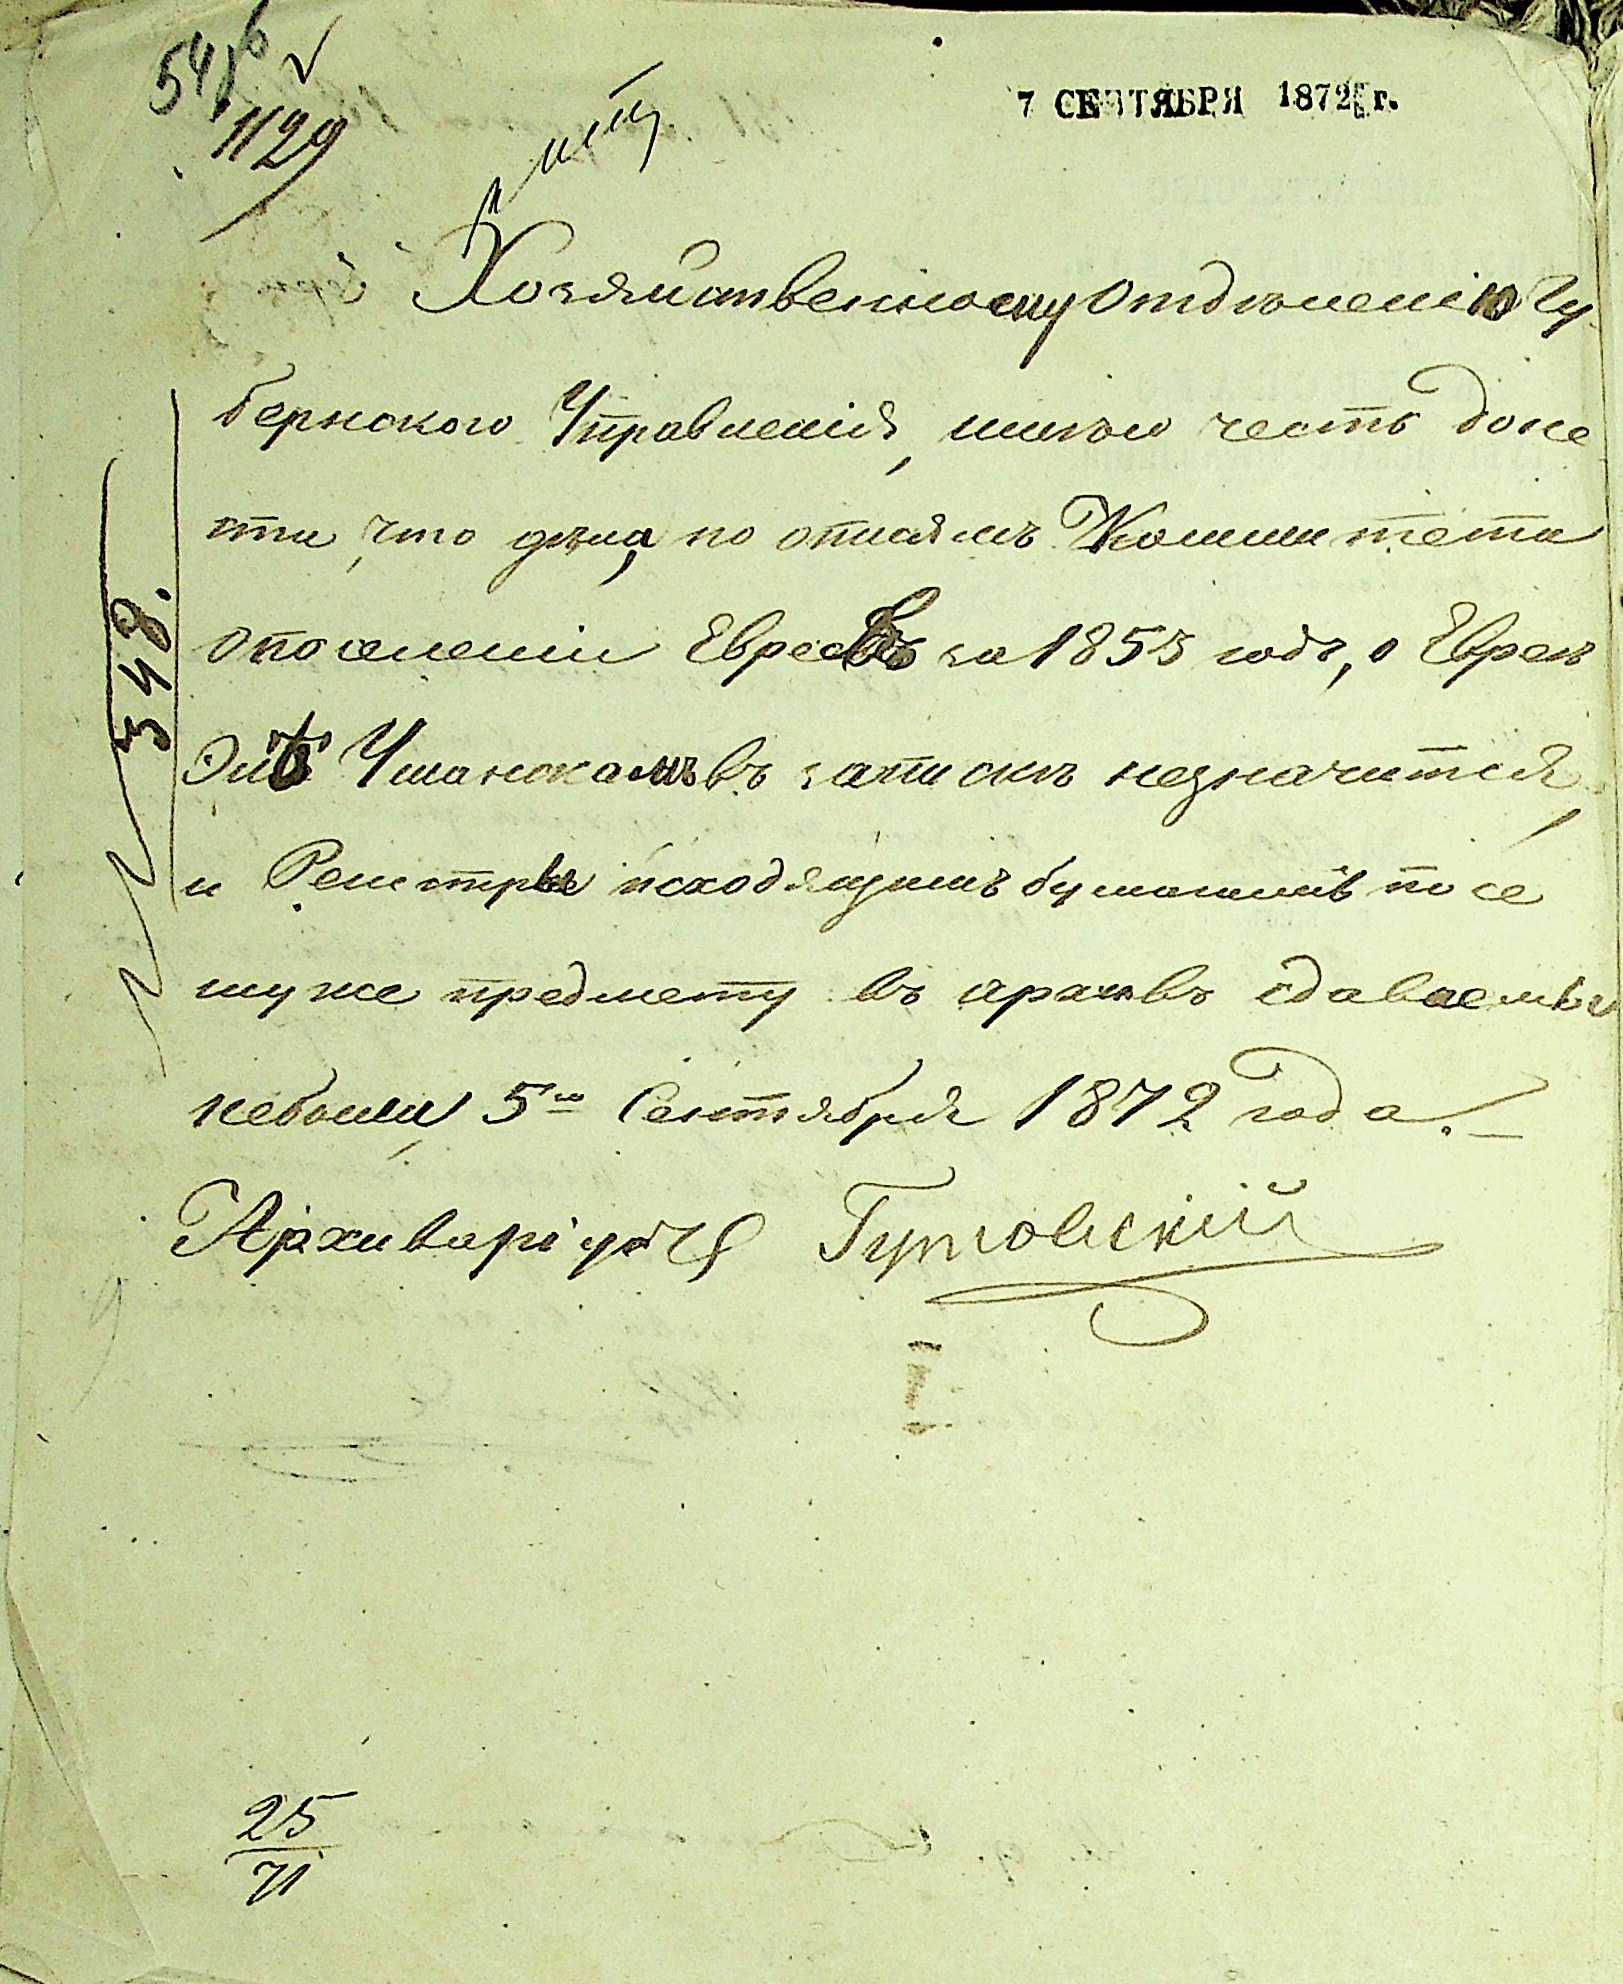 5476
1129
7 СЕНТЯБРЯ 1872 г.
Хозяйственному Отдѣленію Гу
бернского Управленія, имѣю честь доне
сти, что дѣла, по описямъ Коммитета
о поселеніи Евреевъ за 1853 годъ, о Евреѣ
Уманскомъ въ запискѣ незначится,
и Реистръ исходящимъ бумагамъ по се
му же предмету въ архивъ сдаваемы
небыли, 5го Сентября 1872 года.
Архиваріусъ Гутовскій
348.
25
71